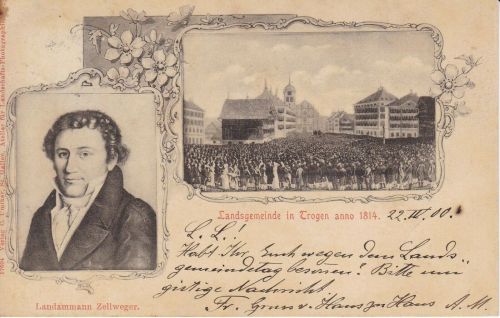 Landsgemeinde in Trogen anno 1814.
22. IV. 00.
L. L.!
Habt Ihr Euch wegen dem Lands-
gemeindetag besonnen? Bitte um
gütige Nachricht
Fr. Gruss v. Haus zu Haus A. M.
Landammann Zellweger.